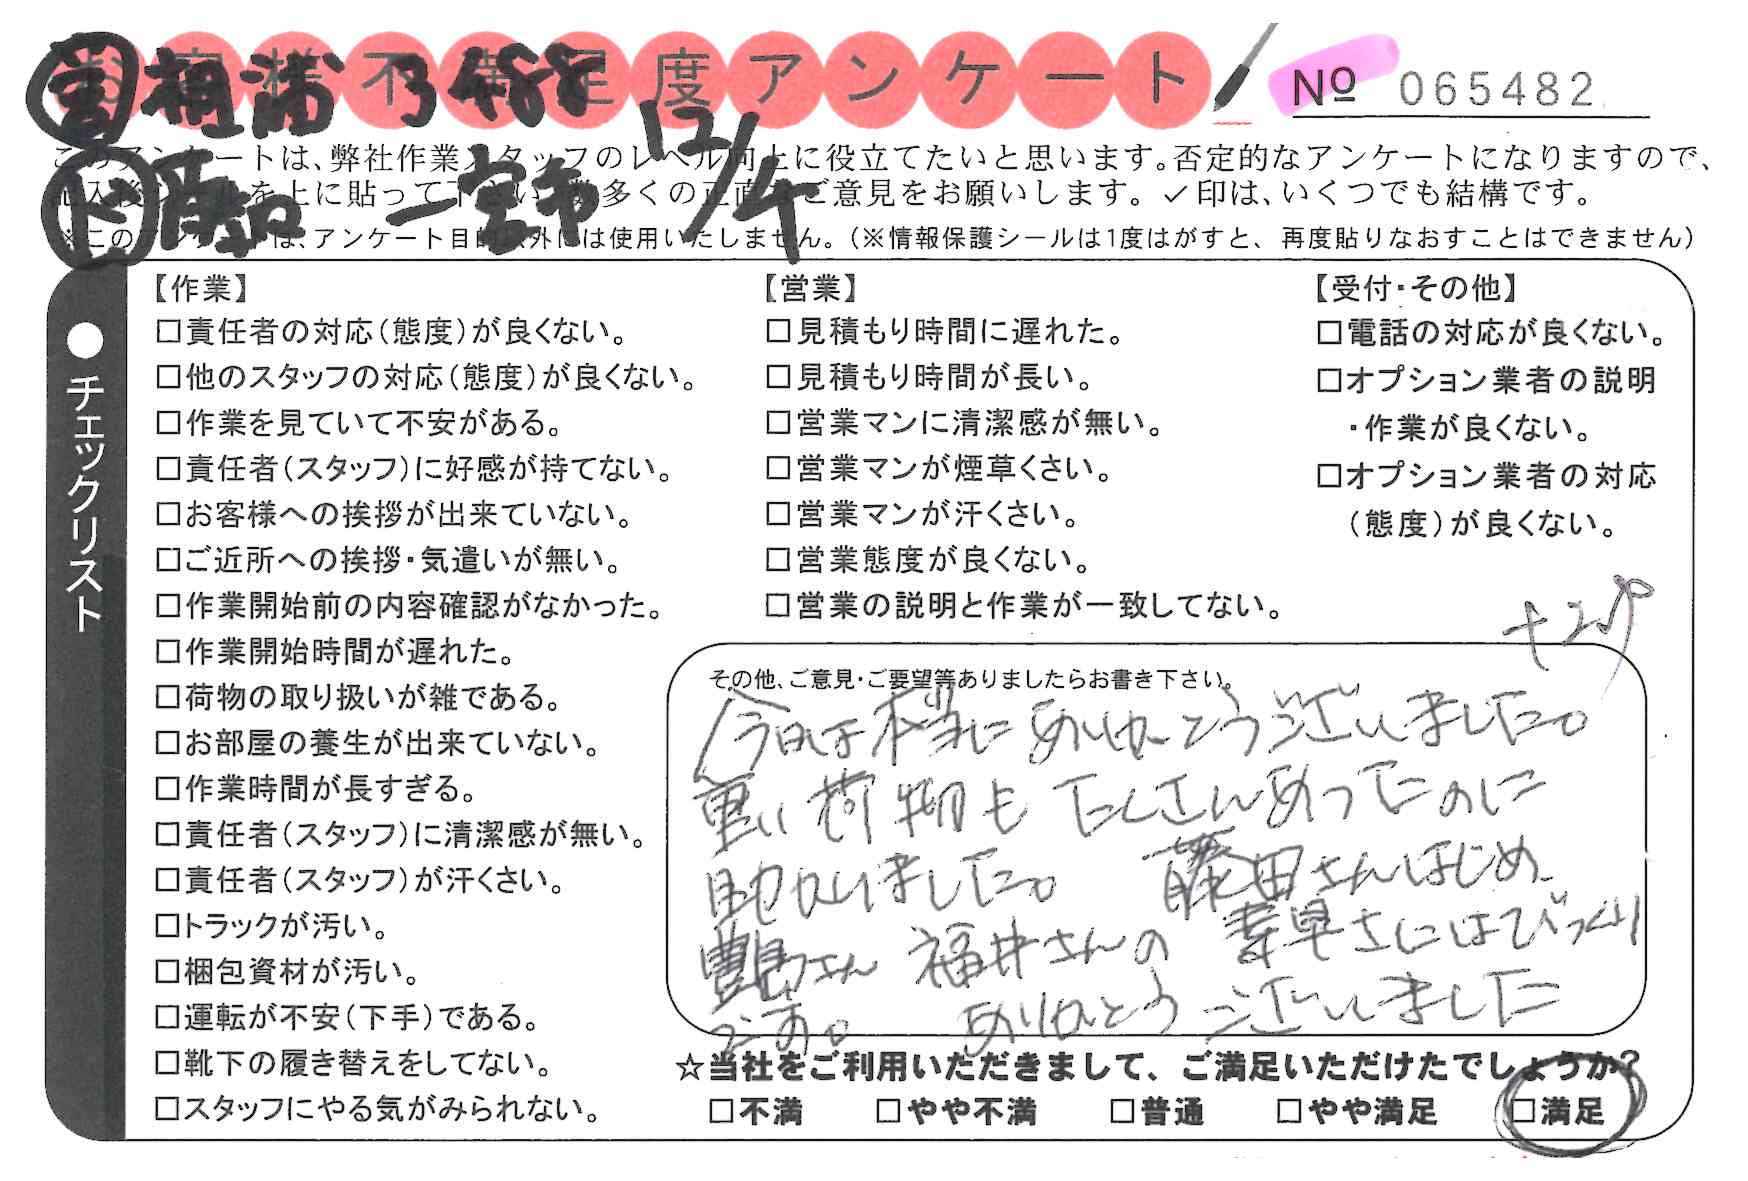 お客様不満足度アンケート
№ 065482
営 相浦 3488
12/4
このアンケートは、弊社作業スタッフのレベル向上に役立てたいと思います。否定的なアンケートになりますので、
記入後シールを上に貼って下さい。数多くの正直なご意見をお願いします。✓印は、いくつでも結構です。
一宮市
※このアンケートは、アンケート目的以外には使用いたしません。（※情報保護シールは1度はがすと、再度貼りなおすことはできません）
●チェックリスト
【作業】
□責任者の対応（態度）が良くない。
□他のスタッフの対応（態度）が良くない。
□作業を見ていて不安がある。
□責任者（スタッフ）に好感が持てない。
□お客様への挨拶が出来ていない。
□ご近所への挨拶・気遣いが無い。
□作業開始前の内容確認がなかった。
□作業開始時間が遅れた。
□荷物の取り扱いが雑である。
□お部屋の養生が出来ていない。
□作業時間が長すぎる。
□責任者（スタッフ）に清潔感が無い。
□責任者（スタッフ）が汗くさい。
□トラックが汚い。
□梱包資材が汚い。
□運転が不安（下手）である。
□靴下の履き替えをしてない。
□スタッフにやる気がみられない。
【営業】
□見積もり時間に遅れた。
□見積もり時間が長い。
□営業マンに清潔感が無い。
□営業マンが煙草くさい。
□営業マンが汗くさい。
□営業態度が良くない。
□営業の説明と作業が一致してない。
【受付・その他】
□電話の対応が良くない。
□オプション業者の説明
・作業が良くない。
□オプション業者の対応
（態度）が良くない。
その他、ご意見・ご要望等ありましたらお書き下さい。
今日は本当にありがとうございました。
重い荷物もたくさんあったのに
助かりました。 藤田さんはじめ
さん 福井さんの 素早さにはびっくり
です。 ありがとうございました
☆当社をご利用いただきまして、ご満足いただけたでしょうか？
□不満 □やや不満 □普通 □やや満足 □満足